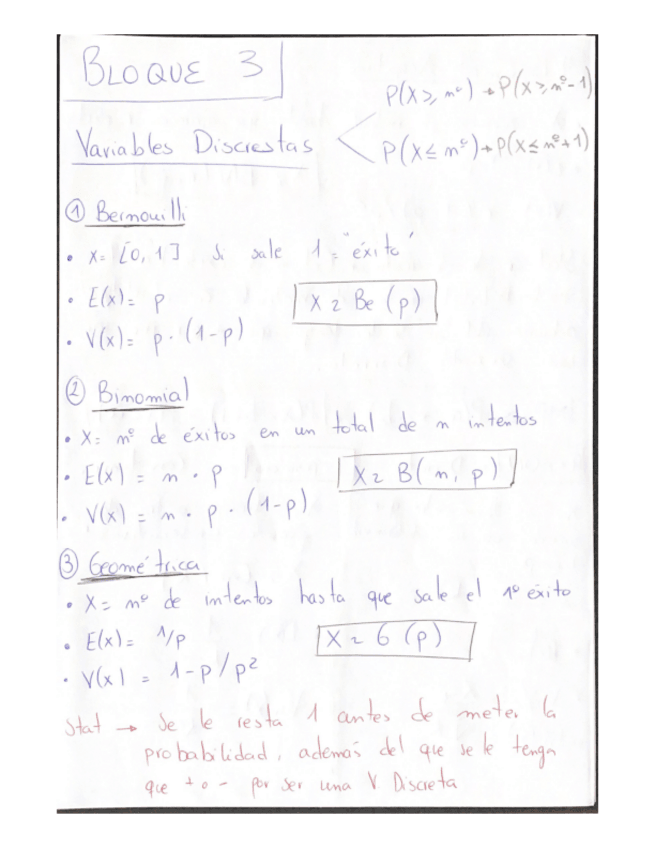 BLOQUE 3
P(X ≥ nº) → P(X ≥ nº-1)
Variables Discrestas
P(X ≤ nº) → P(X ≤ nº+1)
① Bernouilli
• X = [0, 1] Si sale 1 = "éxito"
• E(x) = p
X ~ Be (p)
• V(x) = p · (1-p)
② Binomial
• X = nº de éxitos en un total de n intentos
• E(x) = n · p
X ~ B( n, p )
• V(x) = n · p · (1-p)
③ Geométrica
• X = nº de intentos hasta que sale el 1º éxito
• E(x) = 1/p
X ~ G (p)
• V(x) = 1-p / p²
Stat → Se le resta 1 antes de meter la
probabilidad, además del que se le tenga
que + o - por ser una V Discreta